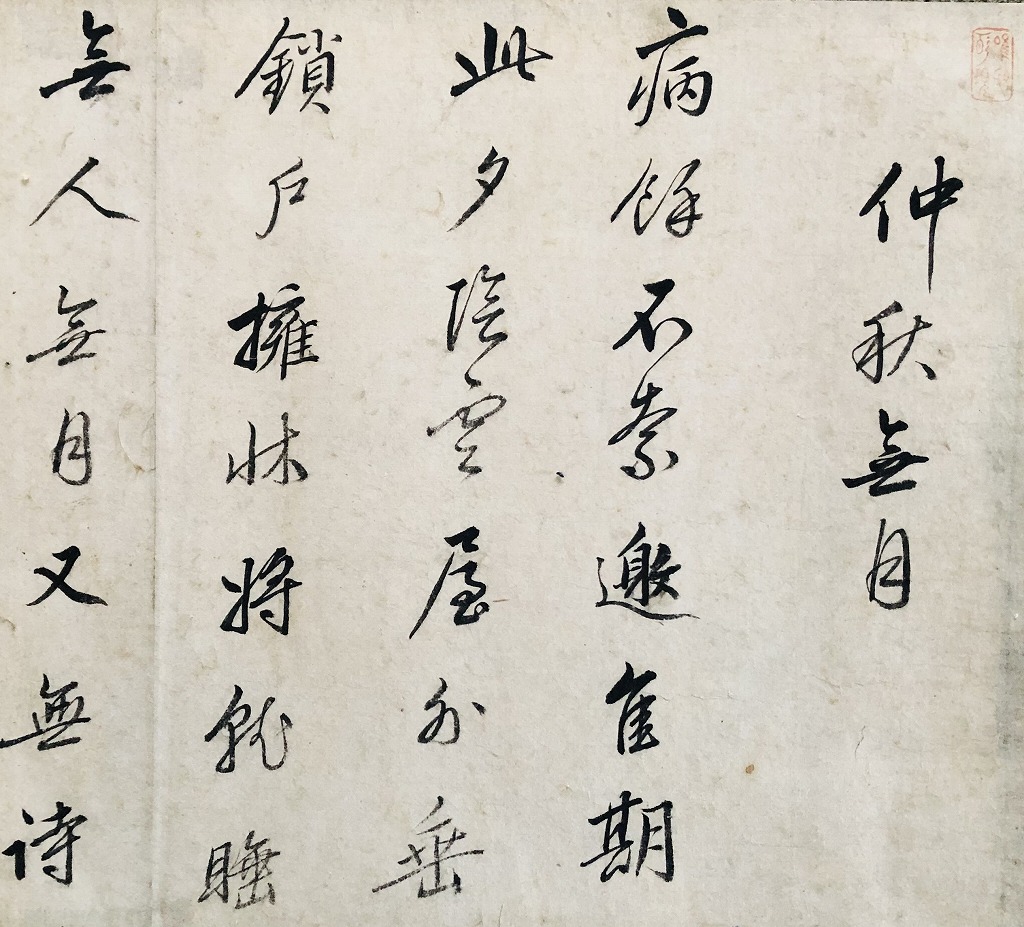 仲秋無月
病餘不奈邀佳期
此夕陰雲屋外垂
鎖戶擁牀將就睡
無人無月又無詩